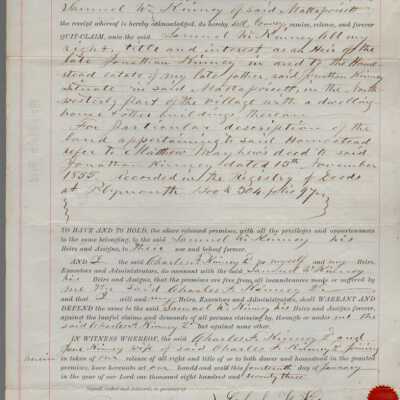 Samuel W. Kinney of said Mattapoisett
the receipt whereof is hereby acknowledged, do hereby sell, convey, remise, release, and forever
QUIT-CLAIM, unto the said Samuel W. Kinney all my
right, title and interest as an Heir of the
late Jonathan Kinney in and to the Home
stead estate of my late father, said Jonathan Kinney
situate in said Mattapoisett, in the North
westerly part of the village with a dwelling
house & other buildings thereon
For particular description of the
land appertaining to said Homestead
refer to Matthew Mayhew's deed to said
Jonathan Kinney dated 15th November
1855 recorded in the Registry of Deeds
at Plymouth Book 304 folio 97.
TO HAVE AND TO HOLD, the above released premises, with all the privileges and appurtenances
to the same belonging, to the said Samuel W. Kinney his
Heirs and Assigns, to their use and behoof forever.
AND I the said Charles F. Kinney 2d for myself and my Heirs,
Executors and Administrators, do covenant with the said Samuel W. Kinney
his Heirs and Assigns, that the premises are free from all incumbrances made or suffered by
me the said Charles F. Kinney 2d
and that I will and my Heirs, Executors and Administrators, shall WARRANT AND
DEFEND the same to the said Samuel W. Kinney his Heirs and Assigns forever,
against the lawful claims and demands of all persons claiming by, through or under me the
said Charles F. Kinney 2d but against none other.
IN WITNESS WHEREOF, the said Charles F. Kinney 2d and
Jane Kinney wife of said Charles F. Kinney 2d joining
herein in token of our release of all right and title of or to both dower and homestead in the granted
premises, have hereunto set our hands and seals this fourteenth day of January
in the year of our Lord one thousand eight hundred and seventy three
Signed, sealed and delivered, in presence of